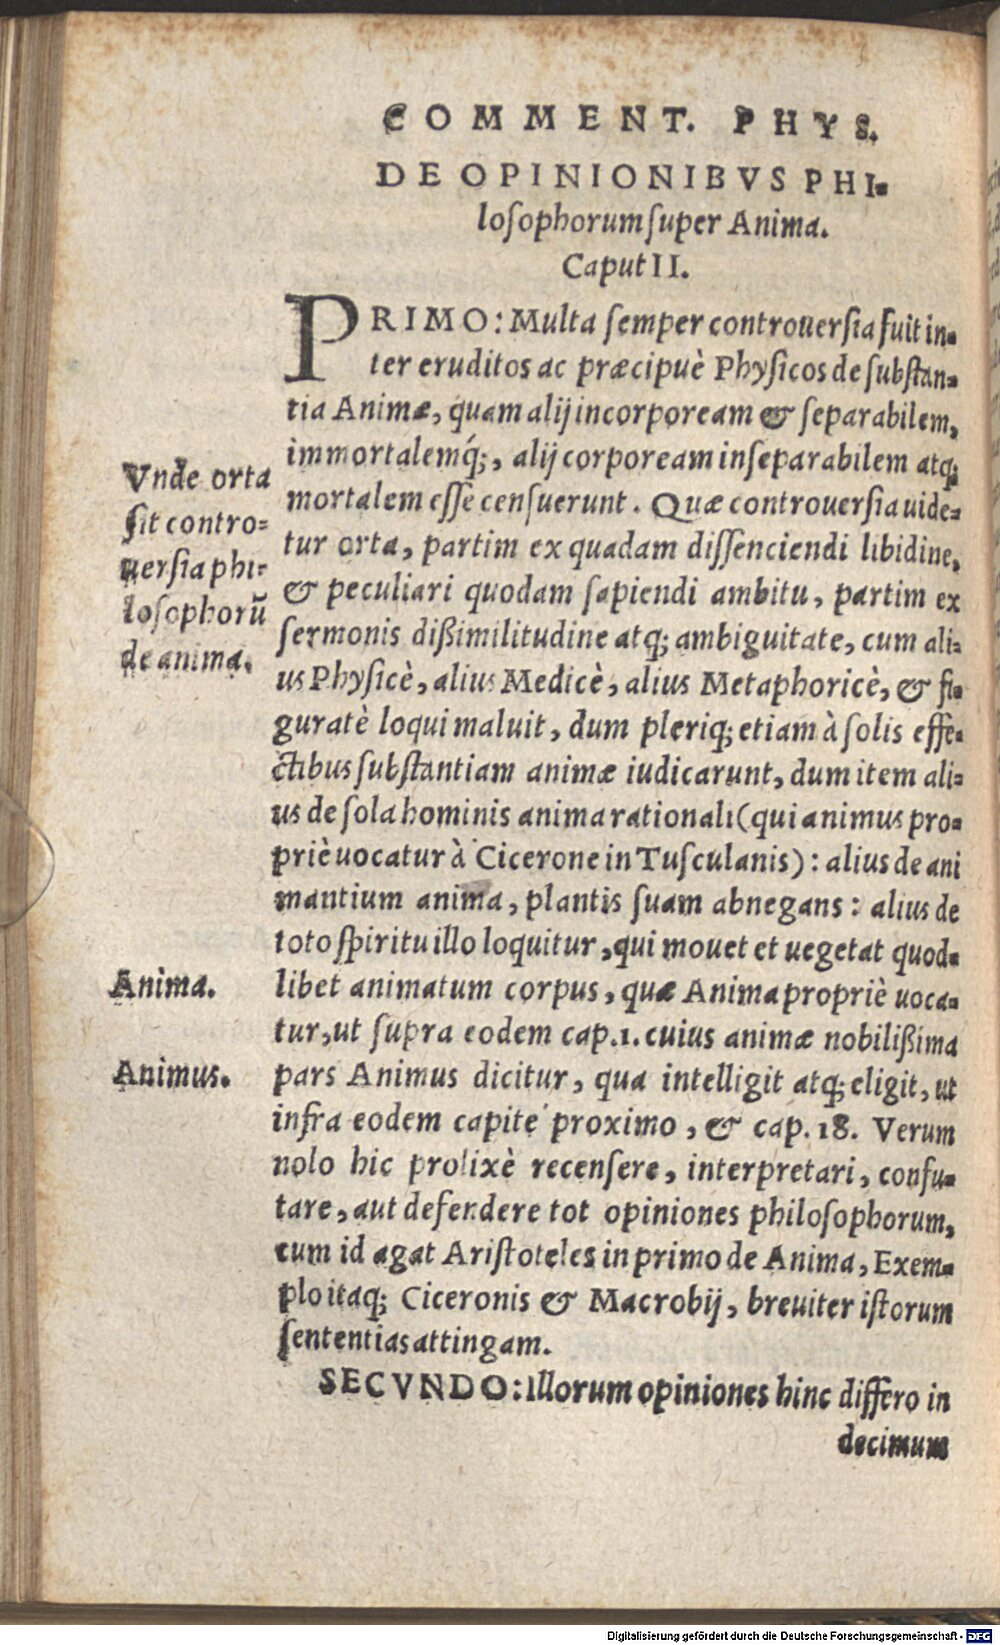 COMMENT. PHYS.
DE OPINIONIBVS PHI-
losophorum super Anima.
Caput II.
PRIMO: Multa semper controuersia fuit in-
ter eruditos ac præcipuè Physicos de substan-
tia Animæ, quam alij incorpoream & separabilem,
immortalemq́;, alij corpoream inseparabilem atq;
mortalem esse censuerunt. Quæ controuersia uide-
tur orta, partim ex quadam dissenciendi libidine,
& peculiari quodam sapiendi ambitu, partim ex
sermonis dißimilitudine atq; ambiguitate, cum ali-
us Physicè, alius Medicè, alius Metaphoricè, & fi-
guratè loqui maluit, dum pleriq; etiam à solis effe-
ctibus substantiam animæ iudicarunt, dum item ali-
us de sola hominis anima rationali (qui animus pro-
priè uocatur à Cicerone in Tusculanis): alius de ani
mantium anima, plantis suam abnegans: alius de
toto spiritu illo loquitur, qui mouet et uegetat quod-
libet animatum corpus, quæ Anima propriè uoca-
tur, ut supra eodem cap. 1. cuius animæ nobilißima
pars Animus dicitur, qua intelligit atq; eligit, ut
infra eodem capite proximo, & cap. 18. Verum
nolo hic prolixè recensere, interpretari, confu-
tare, aut defendere tot opiniones philosophorum,
cum id agat Aristoteles in primo de Anima, Exem-
plo itaq; Ciceronis & Macrobij, breuiter istorum
sententias attingam.
SECVNDO: Illorum opiniones hinc differo in
decimum
Vnde orta
sit contro-
uersia phi-
losophorũ
de anima.
Anima.
Animus.
Digitalisierung gefördert durch die Deutsche Forschungsgemeinschaft - DFG